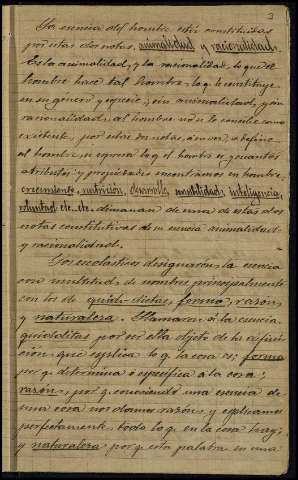 3
La esencia del hombre está constituida
por estas dos notas, animalidad y racionalidad.
Es la animalidad, y la racionalidad, lo que al
hombre hace tal hombre, lo q. le constituye
en su género y especie; sin animalidad, y sin
racionalidad, al hombre no se le concibe como
existent. por estas dos notas, á su vez, se define
al hombre, se expresa lo q. el hombre es, y cuantos
atributos y propiedades encontramos en hombre,
crecimiento, nutricion, desarrollo, sensibilidad, inteligencia,
voluntad etc. etc. dimanan de una de estas dos
notas constitutivas de su esencia animalidad
y racionalidad.
Los escolásticos designarón, la esencia
con multitud de nombres principalmente
con los de quidditas, forma, razón,
y naturaleza. Llamaron á la esencia,
quidditas por ser ella objeto de la defini-
ción, que explica lo q. la cosa es; forma
por q. determina ó especifica á la cosa;
razón, por q. conociendo una esencia de
una cosa nos damos razón, y explicamos
perfectamente todo lo q. en la cosa hay;
y naturaleza por q. esta palabra en una